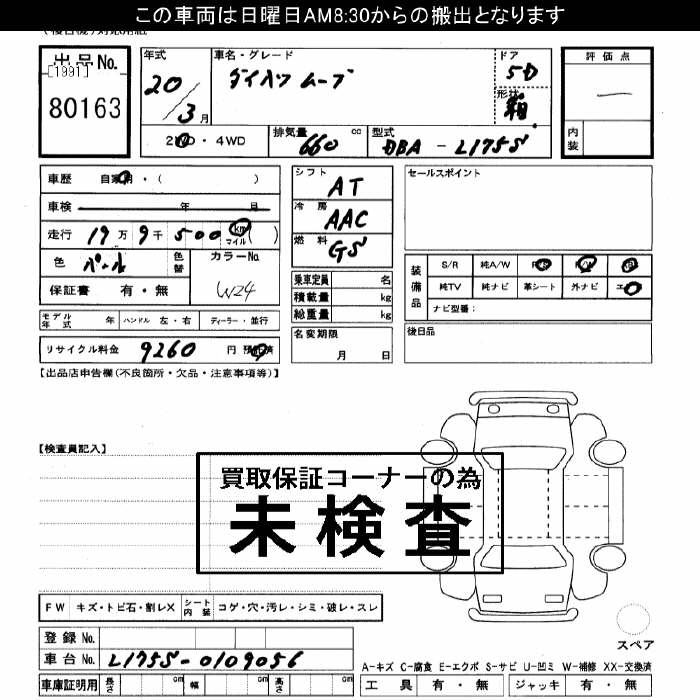 この車両は日曜日AM8:30からの搬出となります
出品No.
[1991]
80163
年式
20/3月
車名・グレード
ダイハツ ムーブ
ドア
5D
形状
箱
評価点
―
内装
2WD・4WD
排気量
660 cc
型式
DBA - L175S
車歴 自家用・( )
車検 年 月
走行 19万9千500 km マイル ( )
色 パール
色替
カラーNo
W24
保証書 有・無
モデル年式 年 ハンドル 左・右 ディーラー・並行
リサイクル料金 9260 円 預託済
シフト
AT
冷房
AAC
燃料
GS
乗車定員 名
積載量 kg
総重量 kg
名変期限
月 日
セールスポイント
装備品
S/R 純A/W P/S P/W
純TV 純ナビ 革シート 外ナビ
ナビ型番:
後日品
【出品店申告欄(不良箇所・欠品・注意事項等)】
【検査員記入】
買取保証コーナーの為
未検査
FW キズ・トビ石・割レX シート内装 コゲ・穴・汚レ・シミ・破レ・スレ
登録No.
車台No. L175S-0109056
車庫証明用 長さ cm 幅 cm 高さ cm
スペア
A-キズ C-腐食 E-エクボ S-サビ U-凹ミ W-補修 XX-交換済
工具 有・無 ジャッキ 有・無